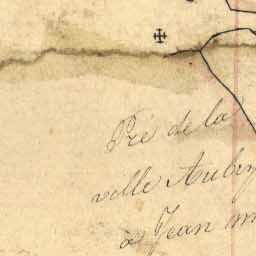 Pré de la
ville Aubry
à Jean